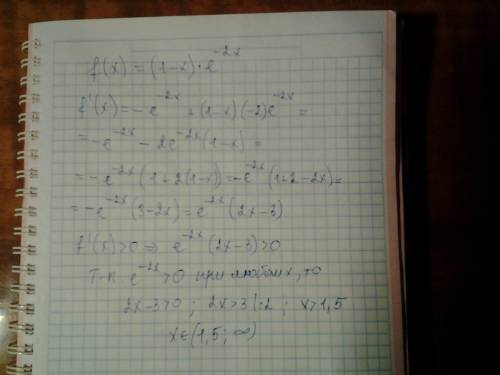 f(x) = (1-x)·e^{-2x}
f'(x) = -e^{-2x} + (1-x)(-2)e^{-2x} =
= -e^{-2x} - 2e^{-2x}(1-x) =
= -e^{-2x}(1+2(1-x)) = -e^{-2x}(1+2-2x) =
= -e^{-2x}(3-2x) = e^{-2x}(2x-3)
f'(x)>0 ⇒ e^{-2x}(2x-3)>0
Т.к. e^{-2x}>0 при любом x, то
2x-3>0 ; 2x>3|:2 ; x>1,5
x∈(1,5; ∞)